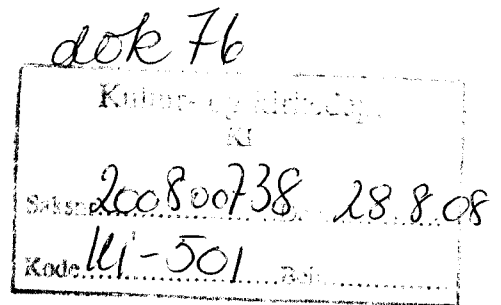 dok 76
Kultur- og kirkedep.
KI
Saksnr. 200800738 28.8.08
Kode